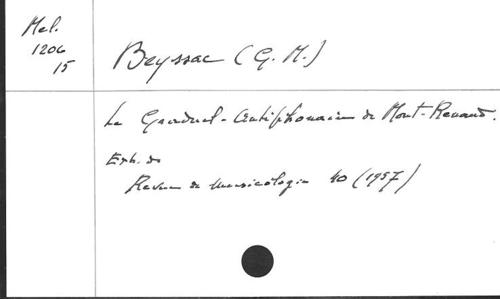 Mel.
1206
15
Beyssac (G. M.)
Le Graduel-Antiphonaire de Mont-Renaud.
Extr. de
Revue de musicologie 40 (1957)